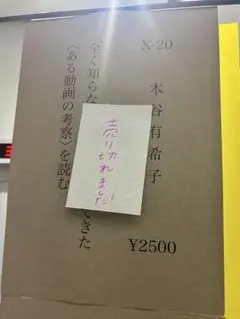 X-20
本谷有希子
全く知らな
てきた
〈ある動画の考察〉を読む
売り切れました!
¥2500